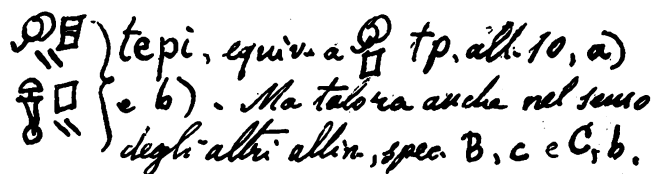 tepi, equiv. a tp, all. 10, a)
e b). Ma talora anche nel senso
degli altri allin., spec. B, c e C, b.